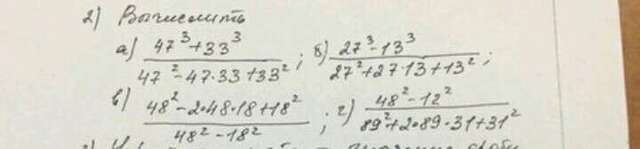 2) Вычислить
а) (47³+33³)/(47²-47·33+33²); б) (27³-13³)/(27²+27·13+13²);
в) (48²-2·48·18+18²)/(48²-18²); г) (48²-12²)/(89²+2·89·31+31²)